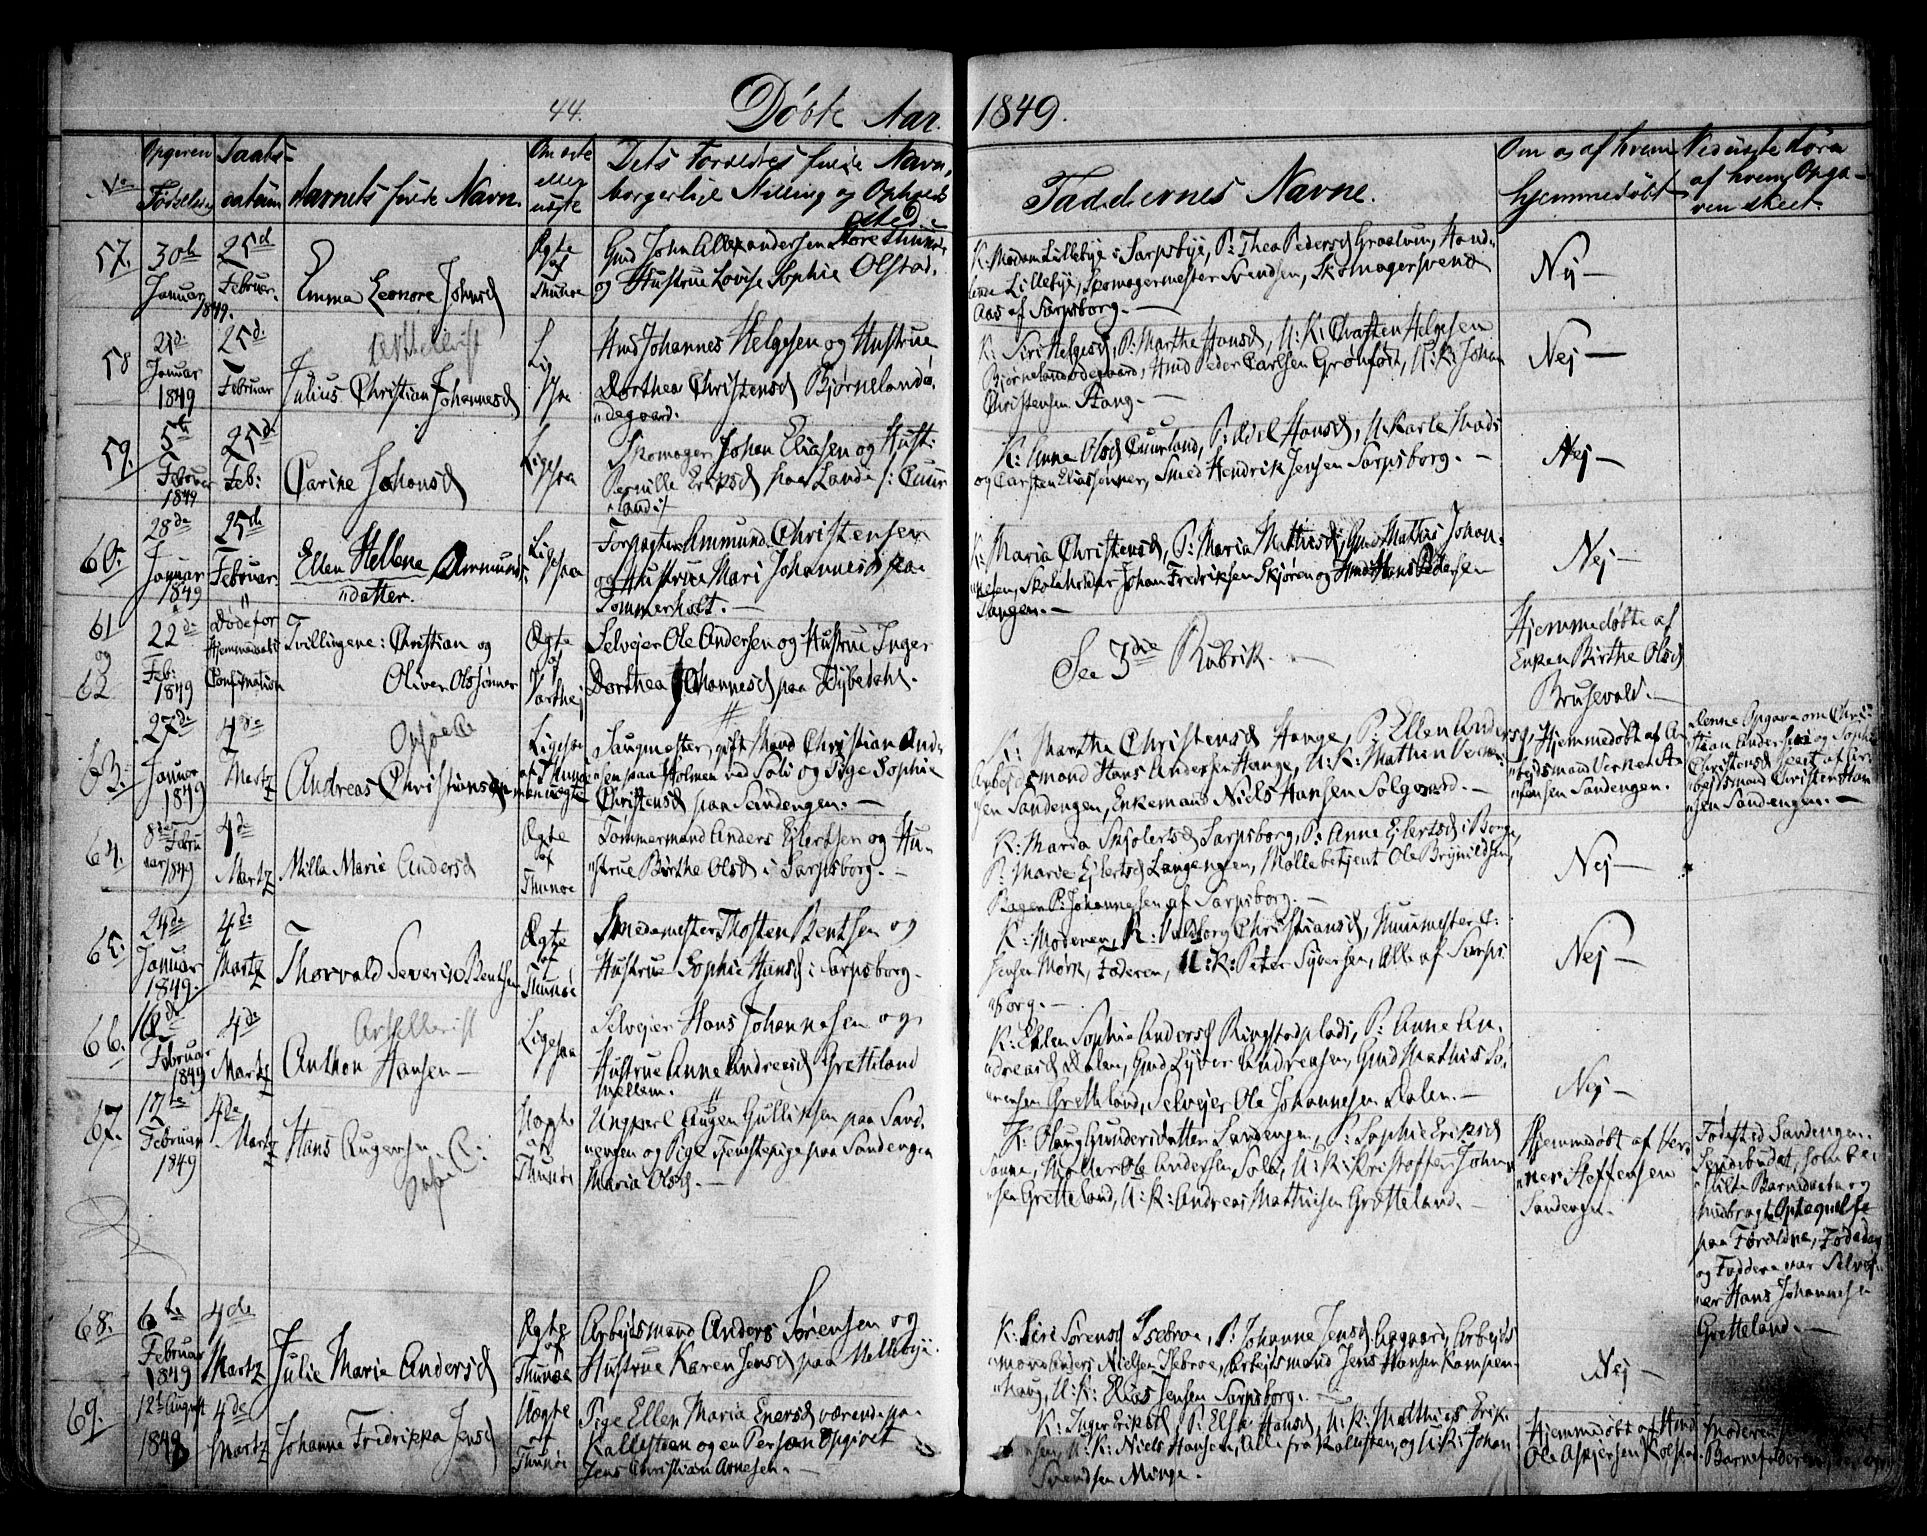 44.
Døbte Aar 1849.
No
Opgiven Fødselsdatum
Daabsdatum
Barnets fulde Navn.
Om ægte eller uægte
Dets Forældres fulde Navn,
borgerlige Stilling og Opholds
sted
Faddernes Navne.
Om og af hvem
hjemmedøbt
57.
30te
Januar
1849.
25d
Februar.
Emma Leonore Johnsd
Ægte
af
Thunøe
Gmd John Allexandersen Store Thune
og Hustrue Lovise Sophie Olstad.
K: Madam Lillebye i Sarpsbye, P: Thea Pedersd Graalum, Hand-
Lillebye, Skomagermester Svendsen, Skomagersvend
Aas af Sarpsborg. —
Nej —
58
21de
Januar
1849
25d.
Februar
Julius Christian Johannesd
Lige
saa
Hmd Johannes Helgesen og Hustrue
Dorthea Christensd Bjørneland
ødegaard.
K: Siri Helgesd, P: Marthe Hansd, U:K: Carsten Helgesen
Bjørnelandødegaard, Hmd Peder Carlsen Grønfødt, U:K: Johan
Christensen Stang. —
Nej —
59.
5te
Februar
1849
25d
Feb:
Carine Johansd
Ligesaa
Skomager Johan Eliasen og Hust:
Pernille Eriksd paa Lande /: Cuur
land:/
K: Anna Olsd Cuurland, P: Edel Hansd, U:Karle Mads
og Carsten Eliassønner, Smed Hendrik Jensen Sarpsborg. —
Nej —
60.
28de
Januar
1849
25de
Februar
Ellen Hellene Ammunds
datter.
Ligesaa
Forpagter Ammund Christensen
og Hustrue Mari Johannesd paa
Sommerholt. —
K: Maria Christensd, P: Maria Mathisd, Gmd Mathis Johan-
nesen, Skoleholder Johan Fredriksen Skjøren og Hmd Hans Pedersen
Tangen. —
Nej —
61
og
62
22de
Feb:
1849
Døde før
Hjemmedaabs
Confirmation
Tvillingene: Christian og
Oliver Olssønner
Ægte
af
Selvejer Ole Andersen og Hustrue Inger
Dorthea Johannesd paa Dybedahl.
See 3die Rubrik. —
Hjemmedøbte af
Enken Birthe Olsd
Brusevold. —
63.
27de
Januar
1849
4de
Martz
Andreas Christiansen
Ligesaa
af Thunøe
men uægte
Saugmester, gift Mand Christian Ande
sen paa Holmen ved Soli og Pige Sophie
Christensd paa Sandengen. —
K: Marthe Christensd Hange, P: Ellen Andersd,
Arbejdsmand Hans Andersen Hange, U:K: Mathea Verne
sen Sandengen, Enkemand Niels Hansen Solgaard. —
Hjemmedøbt af Ar
bejdsmand Verner Ste
fensen Sandengen.
Denne Opgave om Chri
stian Andersen og Sophie
Christensd skeet af Ar
bejdsmand Christen Han
sen Sandengen. —
64.
8de Febru
ar
1849
4de
Martz
Milla Marie Andersd
Ægte
af
Thunøe
Tømmermand Anders Ejlertsen og Hu-
strue Birthe Olsd i Sarpsborg. —
K: Maria Skjolertsd Sarpsborg, P: Anne Ejlertsd i Borge,
P: Marie Ejlertsd Langengen, Møllebetjent Ole Brynildsen,
Bager P: Johannesen af Sarpsborg. —
Nej —
65.
24de
Januar
1849.
4de
Martz
Thorvald Severin Benthsen
Ægte
af
Thunøe
Smedemester Thosten Benthsen og
Hustrue Sophie Hansd i Sarpsborg.
K: Moderen, K: Valborg Christiansd, Muurmester C:
Jensen Mørk, Faderen, U:K: Peter Syversen, Alle af Sarps
borg. —
Nej —
66.
16de
Februar
1849
4de
Martz
Anthon Hansen —
Ligesaa
Selvejer Hans Johannesen og
Hustrue Anne Andreasd Gretteland
mellem.
K: Ellen Sophie Andersd Ringstadplads, P: Anne An-
dreasd Dalen, Gmd Syver Andreasen, Gmd Mathis Sø-
rensen Gretteland, Selvejer Ole Johannesen Dalen. —
Nej —
67.
17te
Februar
1849
4de
Martz
Hans Augensen
Uægte
af
Thunøe
Ungkarl Augen Gulliksen paa Sand
nengen og Pige Tjenestepige paa Sandengen
Maria Olsd. —
K: Olaug Gundersdatter Sandengen, P: Sophie Eriksd
Sanne, Møller Ole Andersen Soli, U:K: Kristoffer Johan
sen Gretteland, U:K: Andreas Mathisen Gretteland. —
Hjemmedøbt af Ver-
ner Steffensen
Sandengen.
Fødested Sandengen.
paa Forældre, Fødedag
og Faddere var Selvej-
er Hans Johannesen
Gretteland. —
68.
6te
Februar
1849
4de
Martz
Julie Marie Andersd
Ægte
af
Thunøe
Arbejdsmand Anders Sørensen og
Hustrue Karen Jensd paa Mellebye.
K: Siri Sørensd Isebroe, P: Johanne Jensd Aagaard, Arbejds
mand Anders Nielsen Isebroe, Arbejdsmand Jens Hansen Kampen-
haug, U:K: Elias Jensen Sarpsborg. —
Nej —
69.
12te August
1848
4de
Martz
Johanne Fredrikka Jensd
Uægte
af
Thunøe
Pige Ellen Maria Enersd værende paa
Kallesteen og en Person Opgivet
Jens Christian Arnesen. —
K: Inger Eriksd, P: Else Hansd, U:K: Matthies Erik
sen, U:K: Niels Hansen, Alle fra Kallesten, og U:K: Johan
Svendsen Minge.
Hjemmedøbt af Hmd
Ole Asbjørsen Kolstad
Moderen
Barnefaderen